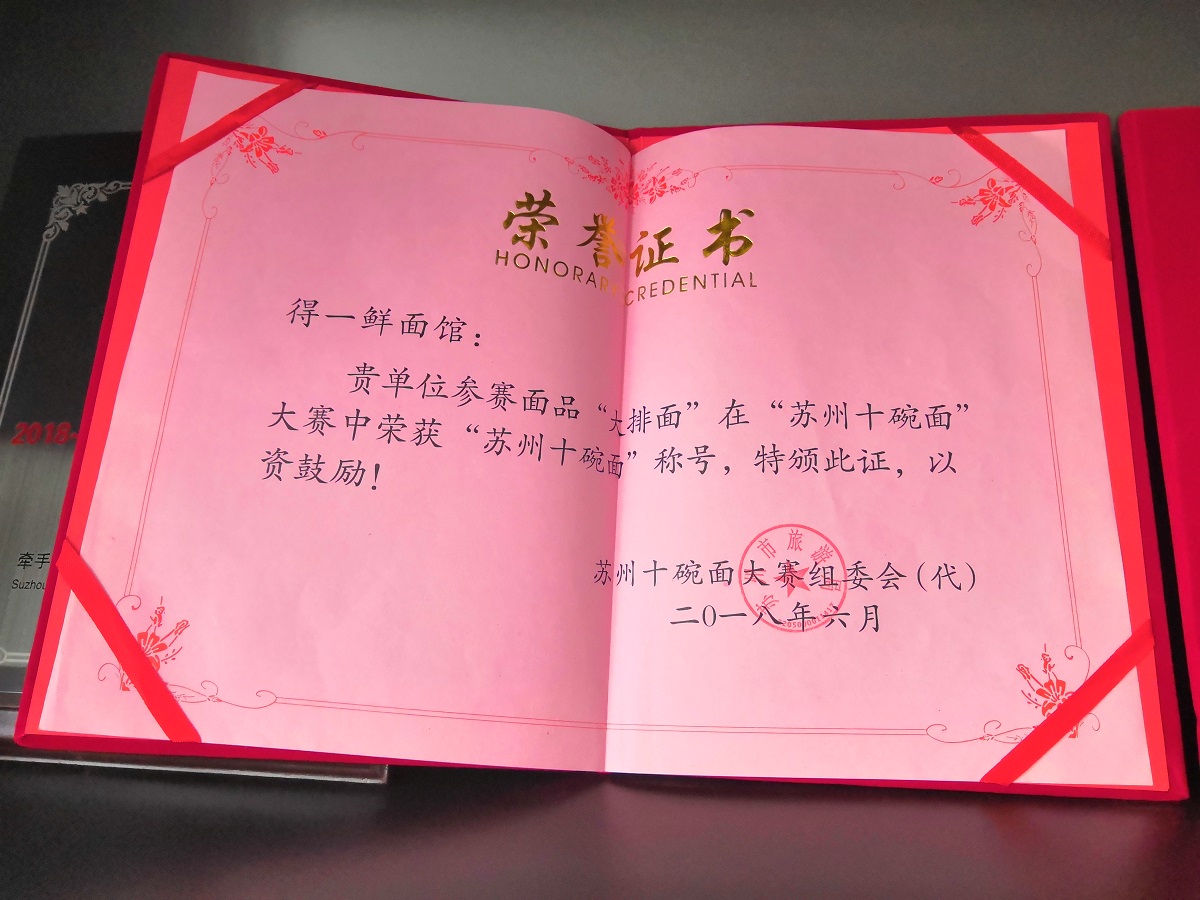 荣誉证书
HONORARY CREDENTIAL
得一鲜面馆：
贵单位参赛面品“大排面”在“苏州十碗面”
大赛中荣获“苏州十碗面”称号，特颁此证，以
资鼓励！
苏州十碗面大赛组委会(代)
二〇一八年六月
市旅游
2018-
牵手
Suzhou